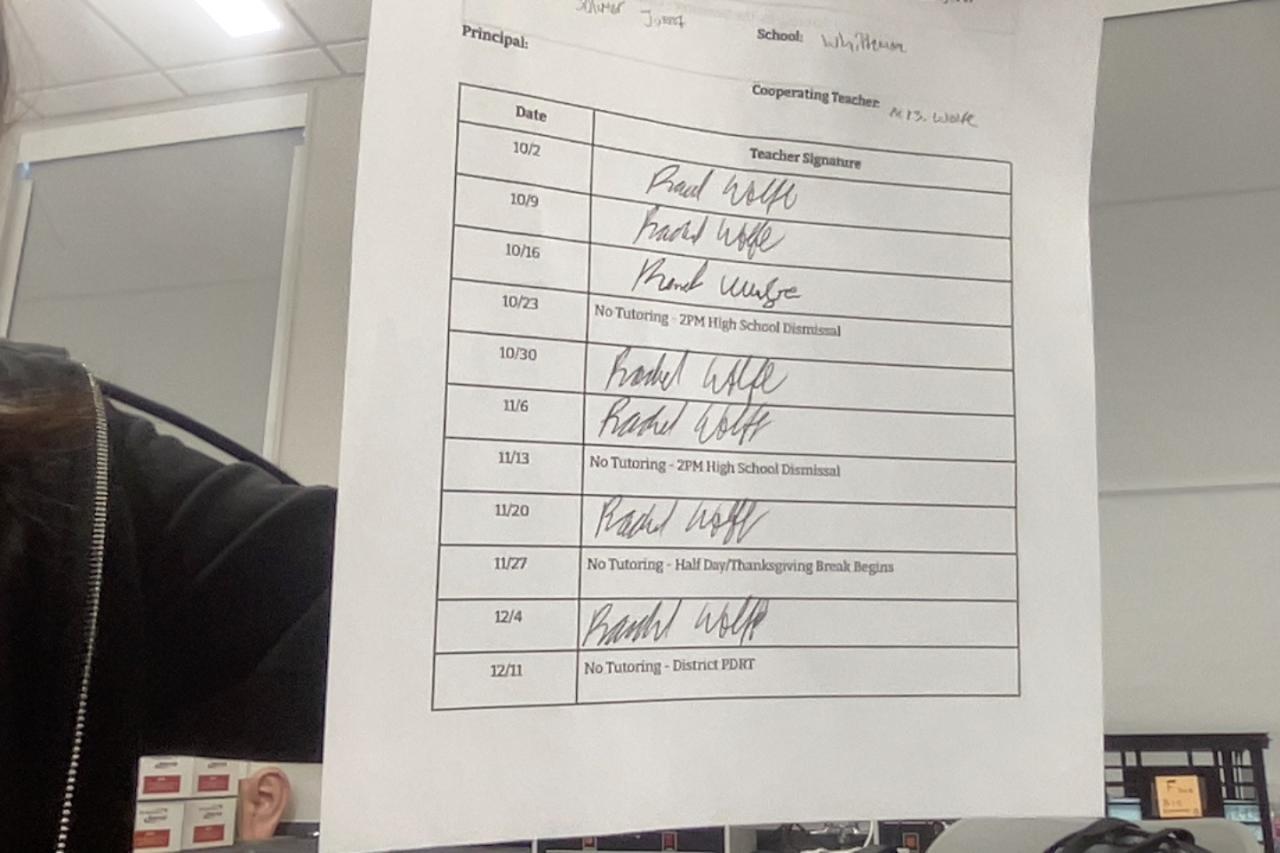 School: Whittemore
Principal:
Cooperating Teacher: Mrs. Wolfe
Date Teacher Signature
10/2 Rachel Wolfe
10/9 Rachel Wolfe
10/16
10/23 No Tutoring - 2PM High School Dismissal
10/30 Rachel Wolfe
11/6 Rachel Wolfe
11/13 No Tutoring - 2PM High School Dismissal
11/20 Rachel Wolfe
11/27 No Tutoring - Half Day/Thanksgiving Break Begins
12/4 Rachel Wolfe
12/11 No Tutoring - District PDRT